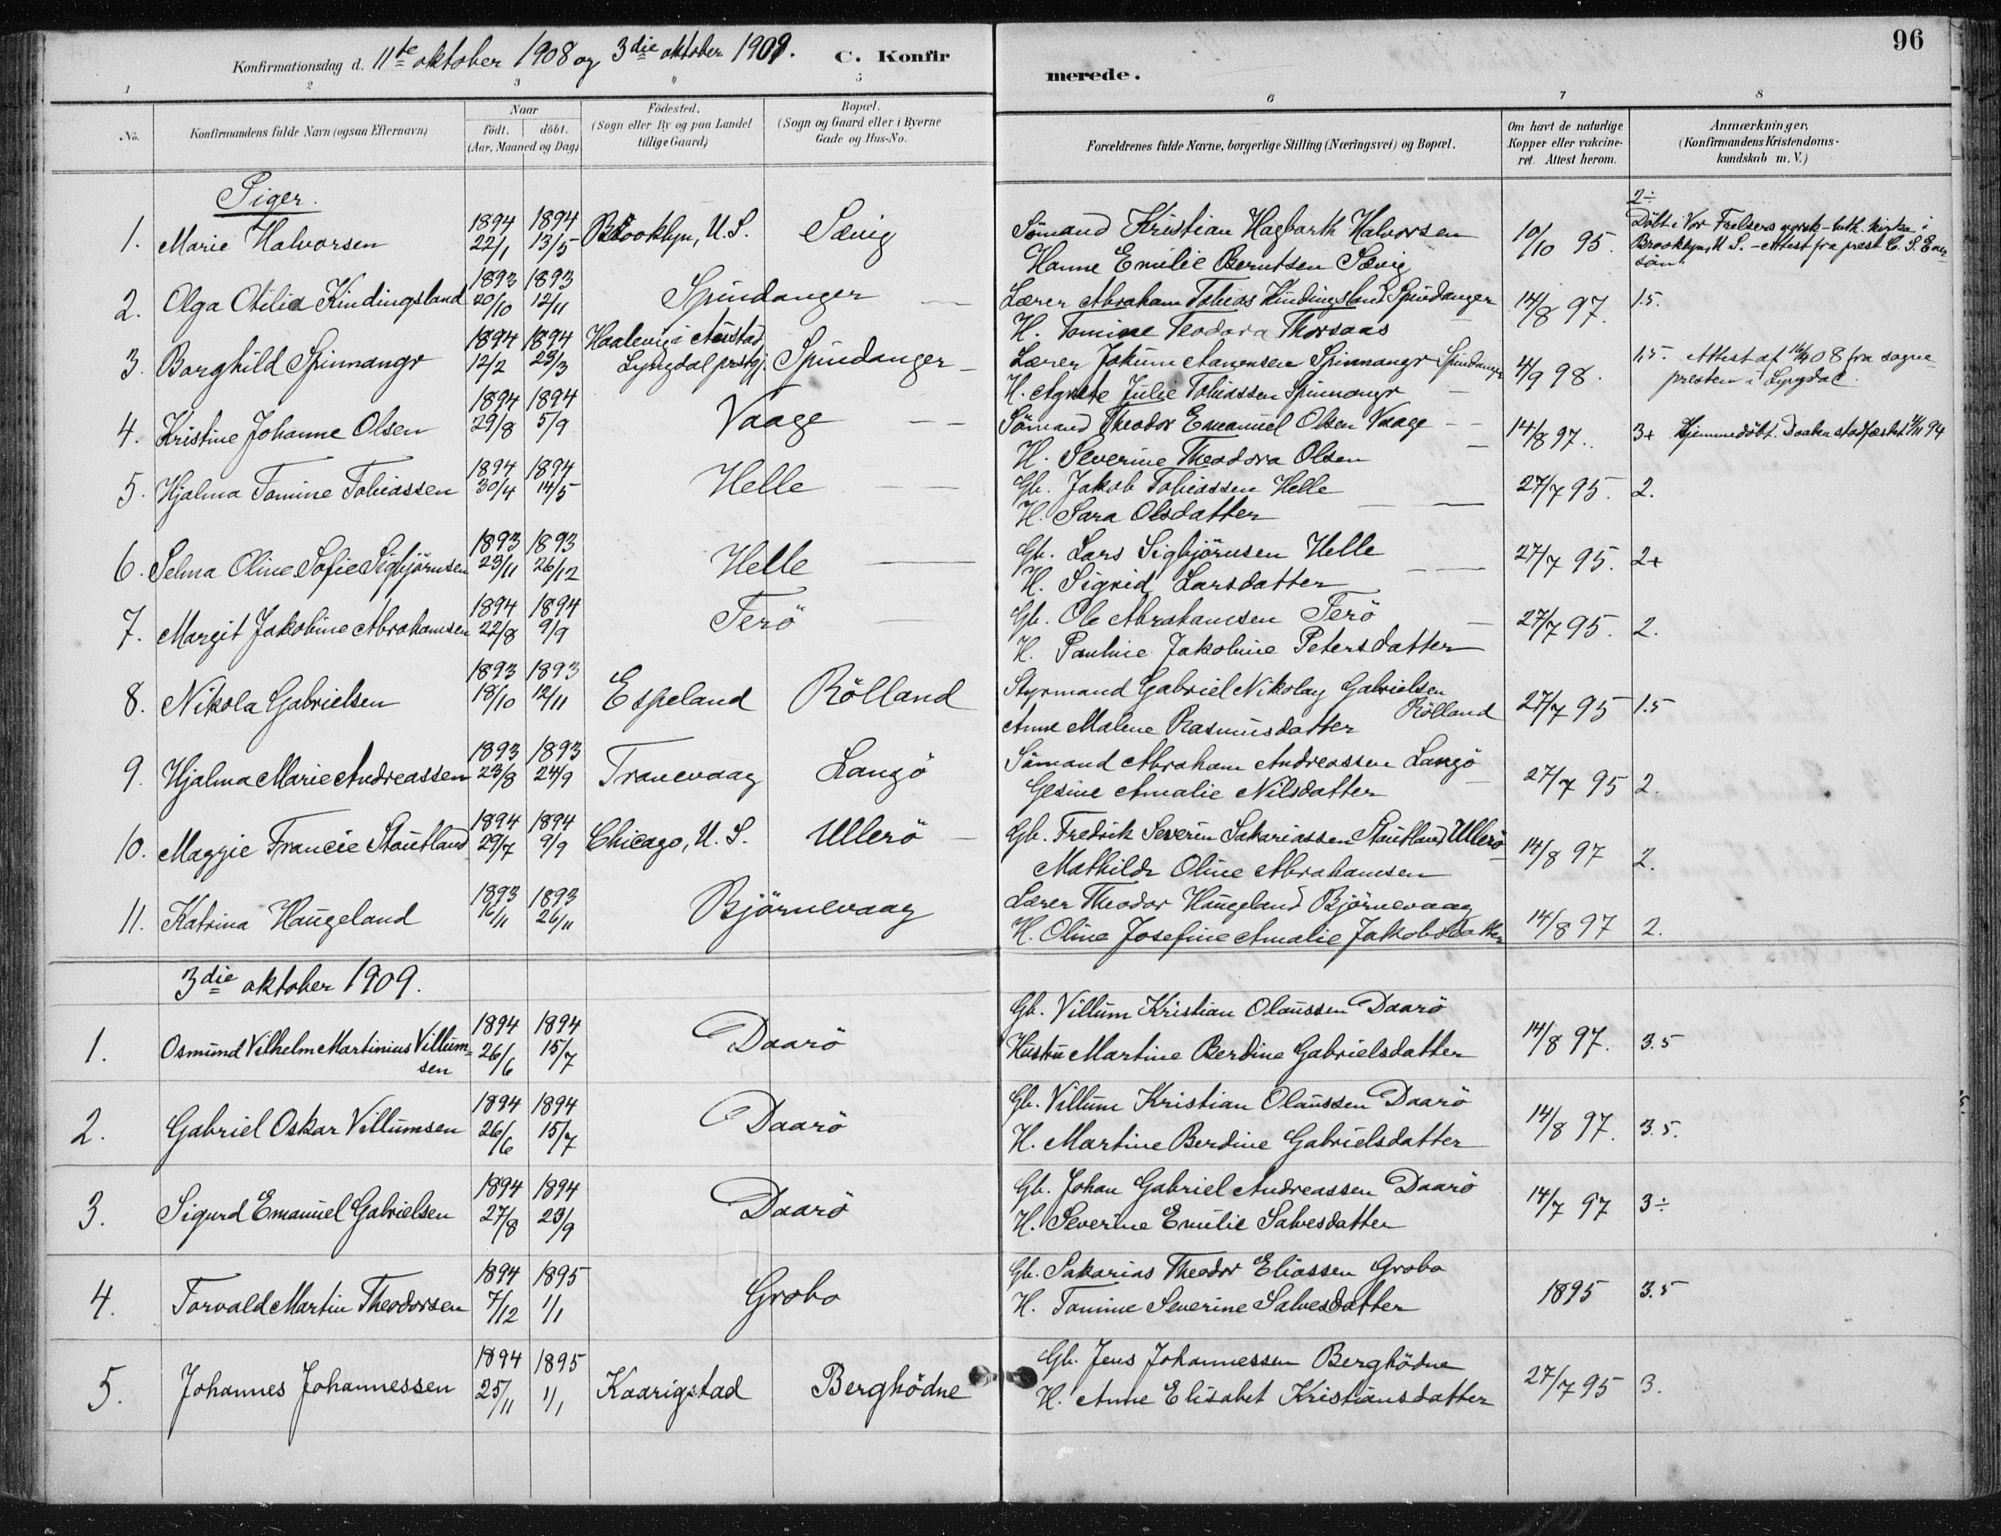 96
Konfirmationsdag d. 11te oktober 1908 og 3die oktober 1909. C. Konfir merede.
1 2 3 " 5 6 7 8
No. Konfirmandens fulde Navn (ogsaa Efternavn) Naar födt. döbt. (Aar, Maaned og Dag) Födested. (Sogn eller By og paa Landet tillige Gaard) Bopæl. (Sogn og Gaard eller i Byerne Gade og Hus-No. Forældrenes fulde Navne, borgerlige Stilling (Næringsvei) og Bopæl. Om havt de naturlige Kopper eller vakcineret. Attest herom. Anmærkninger, (Konfirmandens Kristendomskundskab m. V.)
Piger.
1. Marie Halvorsen 1894 22/1 1894 13/5 Brooklyn, U. S. Sævig Sömand Kristian Hagbarth Halvorsen 10/10 95. 2÷ Döbt i Vor Frelsers norsk-luth. kirke i
Hanne Emilie Berntsen Sævig Brooklyn, U S. - Attest fra prest C. S. Everson.
2. Olga Otilia Kindingsland 1893 20/10 1893 12/11 Spindanger Lærer Abraham Tobias Kindingsland Spindanger 14/8 97. 1.5.
H. Tomine Teodora Thorsaas
3. Borghild Spinnangr 1894 12/2 1894 23/3 Haalevig i Austad, Lyngdal prstgj. Spindanger Lærer Jokum Aanensen Spinnangr Spindanger 4/9 98. 1.5. Attest af 08 fra sogne
H. Agnete Julie Tobiassen Spinnangr presten i Lyngdal.
4. Kristine Johanne Olsen 1894 29/8 1894 5/9 Vaage Sömand Theodor Emanuel Olsen Vaage 14/8 97. 3+ Hjemmedöbt. Daaben stadfæstet 94
H. Severine Theodora Olsen
5. Hjalma Tomine Tobiassen 1894 30/4 1894 14/5 Helle Gb. Jakob Tobiassen Helle 27/7 95. 2.
H. Sara Olsdatter
6. Selma Oline Sofie Sigbjörnsen 1893 23/11 1893 26/12 Helle Gb. Lars Sigbjörnsen Helle 27/7 95. 2+
H. Sigrid Larsdatter
7. Margit Jakobine Abrahamsen 1894 22/8 1894 9/9 Terö Gb. Ole Abrahamsen Terö 27/7 95. 2.
H. Pauline Jakobine Petersdatter
8. Nikola Gabrielsen 1893 18/10 1893 12/11 Espeland Rölland Styrmand Gabriel Nikolay Gabrielsen Rölland 27/7 95 1.5
Anne Malene Rasmusdatter
9. Hjalma Marie Andreassen 1893 23/8 1893 24/9 Tranevaag Langö Sömand Abraham Andreassen Langö 27/7 95 2.
Gesine Amalie Nilsdatter
10. Maggie Francie Stautland 1894 29/7 1894 9/9 Chicago, U. S. Ullerö Gb. Fredrik Severin Sakariassen Stautland Ullerö 14/8 97 2.
Mathilde Oline Abrahamsen
11. Katrina Haugeland 1893 16/11 1893 26/11 Björnevaag Lærer Theodor Haugeland Björnevaag 14/8 97 2.
H. Oline Josefine Amalie Jakobsdatter
3die oktober 1909.
1. Osmund Vilhelm Martinius Villumsen 1894 26/6 1894 15/7 Daarö Gb. Villum Kristian Olaussen Daarö 14/8 97. 3.5
Hustru Martine Berdine Gabrielsdatter
2. Gabriel Oskar Villumsen 1894 26/6 1894 15/7 Daarö Gb. Villum Kristian Olaussen Daarö 14/8 97. 3.5.
H. Martine Berdine Gabrielsdatter
3. Sigurd Emanuel Gabrielsen 1894 27/8 1894 23/9 Daarö Gb. Johan Gabriel Andreassen Daarö 14/7 97 3÷
H. Severine Emilie Salvesdatter
4. Torvald Martin Theodorsen 1894 7/12 1895 1/1 Grobo Gb. Sakarias Theodor Eliassen Grobo 1895 3.5
H. Tomine Severine Salvesdatter
5. Johannes Johannessen 1894 25/11 1895 1/1 Kaarigstad Berghödne Gb. Jens Johannessen Berghödne 27/7 95 3.
H. Anne Elisabet Kristiansdatter